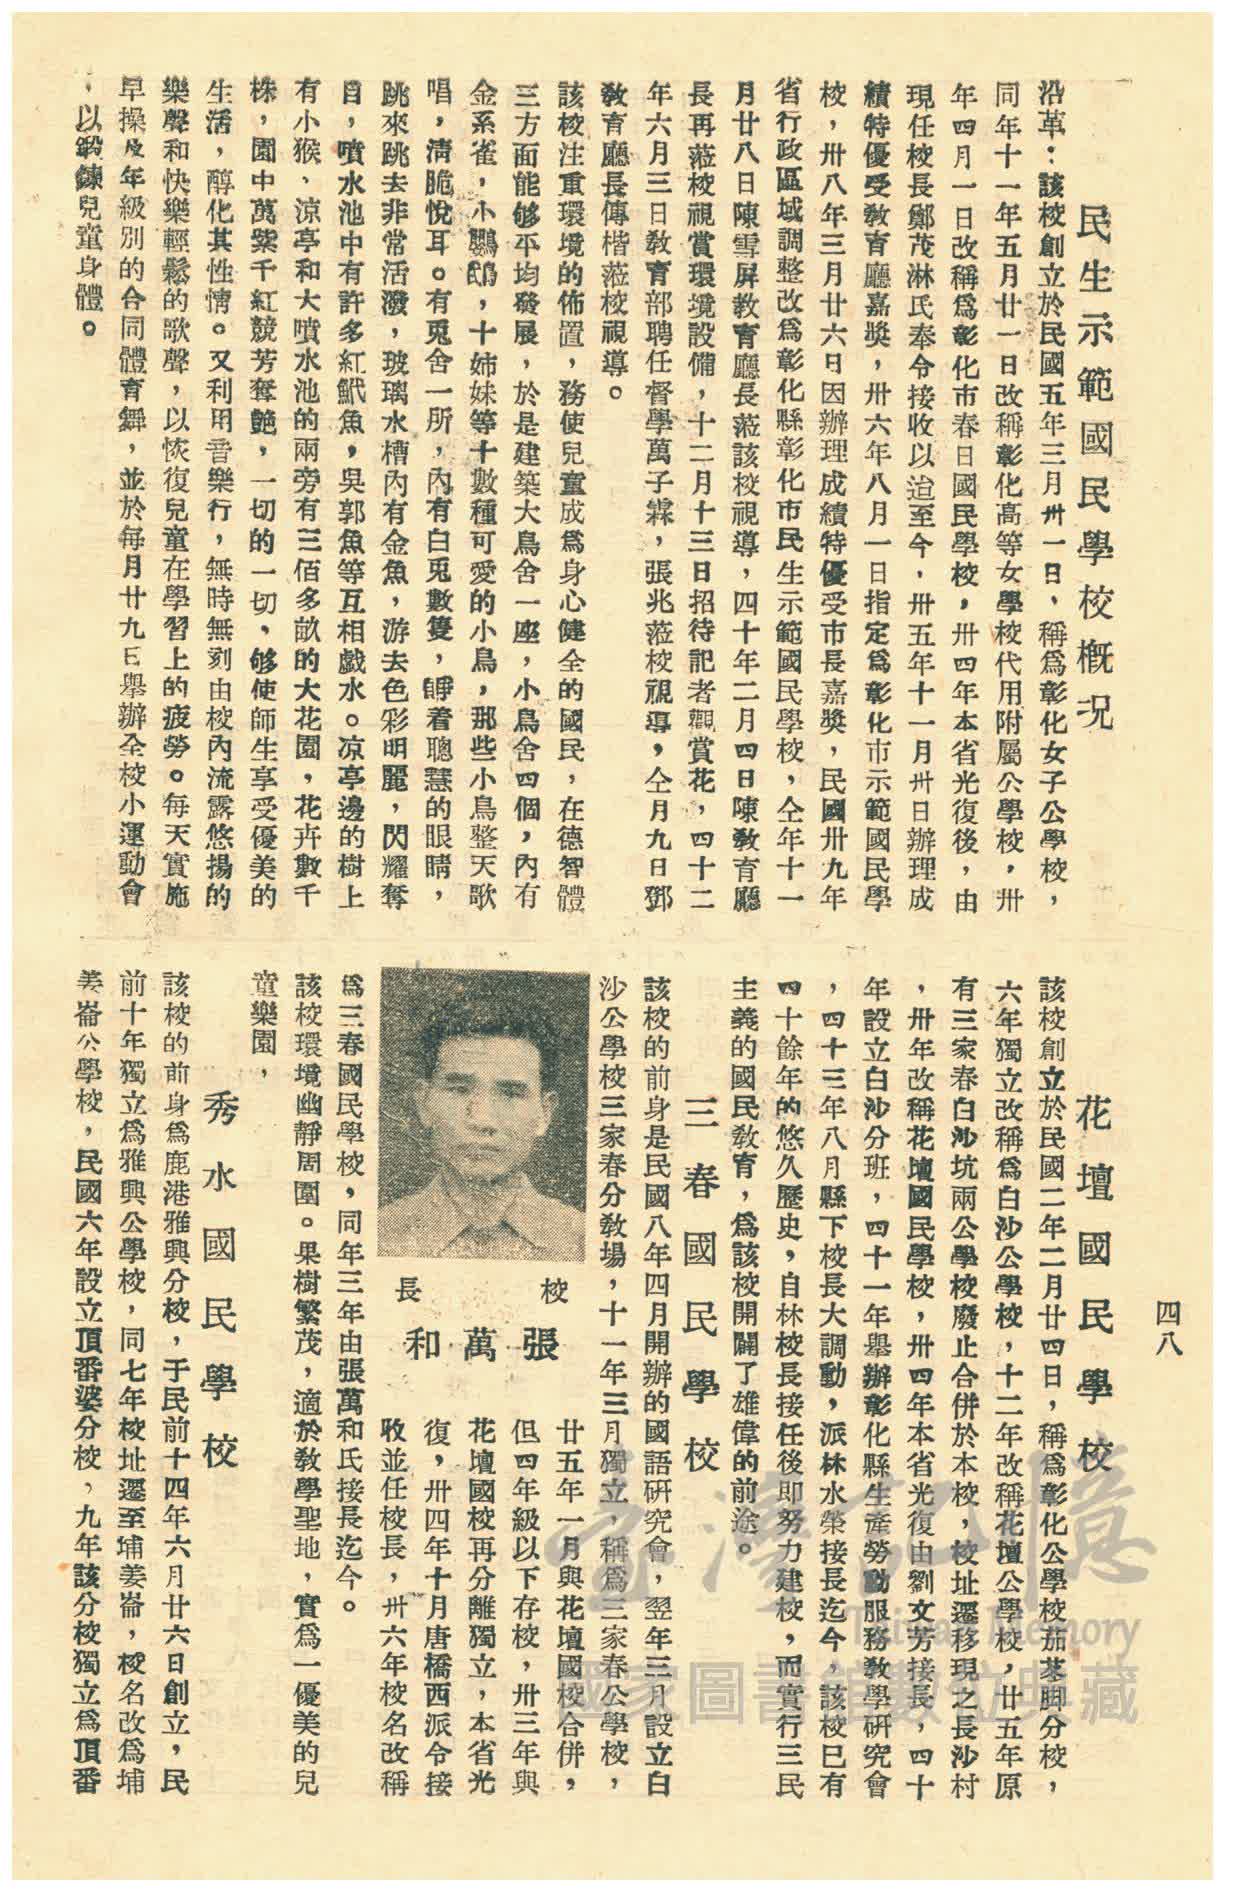 民生示範國民學校概况
沿革：該校創立於民國五年三月卅一日，稱爲彰化女子公學校，
同年十一年五月廿一日改稱彰化高等女學校代用附屬公學校，卅
年四月一日改稱爲彰化市春日國民學校，卅四年本省光復後，由
現任校長鄭茂淋氏奉令接收以迨至今，卅五年十一月卅日辦理成
績特優受敎育廳嘉獎，卅六年八月一日指定爲彰化市示範國民學
校，卅八年三月廿六日因辦理成績特優受市長嘉獎，民國卅九年
省行政區域調整改爲彰化縣彰化市民生示範國民學校，仝年十一
月廿八日陳雪屏敎育廳長蒞該校視導，四十年二月四日陳敎育廳
長再蒞校視賞環境設備，十二月十三日招待記者觀賞花，四十二
年六月三日敎育部聘任督學萬子霖，張兆蒞校視導，仝月九日鄧
敎育廳長傳楷蒞校視導。
該校注重環境的佈置，務使兒童成爲身心健全的國民，在德智體
三方面能够平均發展，於是建築大鳥舍一座，小鳥舍四個，內有
金系雀，小鸚鵡，十姊妹等十數種可愛的小鳥，那些小鳥整天歌
唱，淸脆悅耳。有兎舍一所，內有白兎數隻，睜着聰慧的眼睛，
跳來跳去非常活潑，玻璃水槽內有金魚，游去色彩明麗，閃耀奪
目，噴水池中有許多紅魮魚，吳郭魚等互相戲水。凉亭邊的樹上
有小猴、凉亭和大噴水池的兩旁有三佰多畝的大花園，花卉數千
株，園中萬紫千紅競芳奪艶，一切的一切，够使師生享受優美的
生活，醇化其性情。又利用音樂行，無時無刻由校內流露悠揚的
樂聲和快樂輕鬆的歌聲，以恢復兒童在學習上的疲勞。每天實施
早操及年級別的合同體育舞，並於每月廿九日舉辦全校小運動會
，以鍛鍊兒童身體。
花壇國民學校
該校創立於民國二年二月廿四日，稱爲彰化公學校茄苳脚分校，
六年獨立改稱爲白沙公學校，十二年改稱花壇公學校，廿五年原
有三家春白沙坑兩公學校廢止合併於本校，校址遷移現之長沙村
，卅年改稱花壇國民學校，卅四年本省光復由劉文芳接長，四十
年設立白沙分班，四十一年舉辦彰化縣生產勞動服務敎學研究會
，四十三年八月縣下校長大調動，派林水榮接長迄今，該校已有
四十餘年的悠久歷史，自林校長接任後即努力建校，而實行三民
主義的國民敎育，爲該校開闢了雄偉的前途。
三春國民學校
該校的前身是民國八年四月開辦的國語研究會，翌年三月設立白
沙公學校三家春分敎場，十一年三月獨立，稱爲三家春公學校，
廿五年一月與花壇國校合併，
但四年級以下存校，卅三年與
花壇國校再分離獨立，本省光
復，卅四年十月唐橋西派令接
收並任校長，卅六年校名改稱
校長
張萬和
爲三春國民學校，同年三年由張萬和氏接長迄今。
該校環境幽靜周圍。果樹繁茂，適於敎學聖地，實爲一優美的兒
童樂園，
秀水國民學校
該校的前身爲鹿港雅興分校，于民前十四年六月廿六日創立，民
前十年獨立爲雅興公學校，同七年校址遷至埔姜崙，校名改爲埔
姜崙公學校，民國六年設立頂番婆分校，九年該分校獨立爲頂番
四八
臺灣記憶
Taiwan Memory
國家圖書館數位典藏